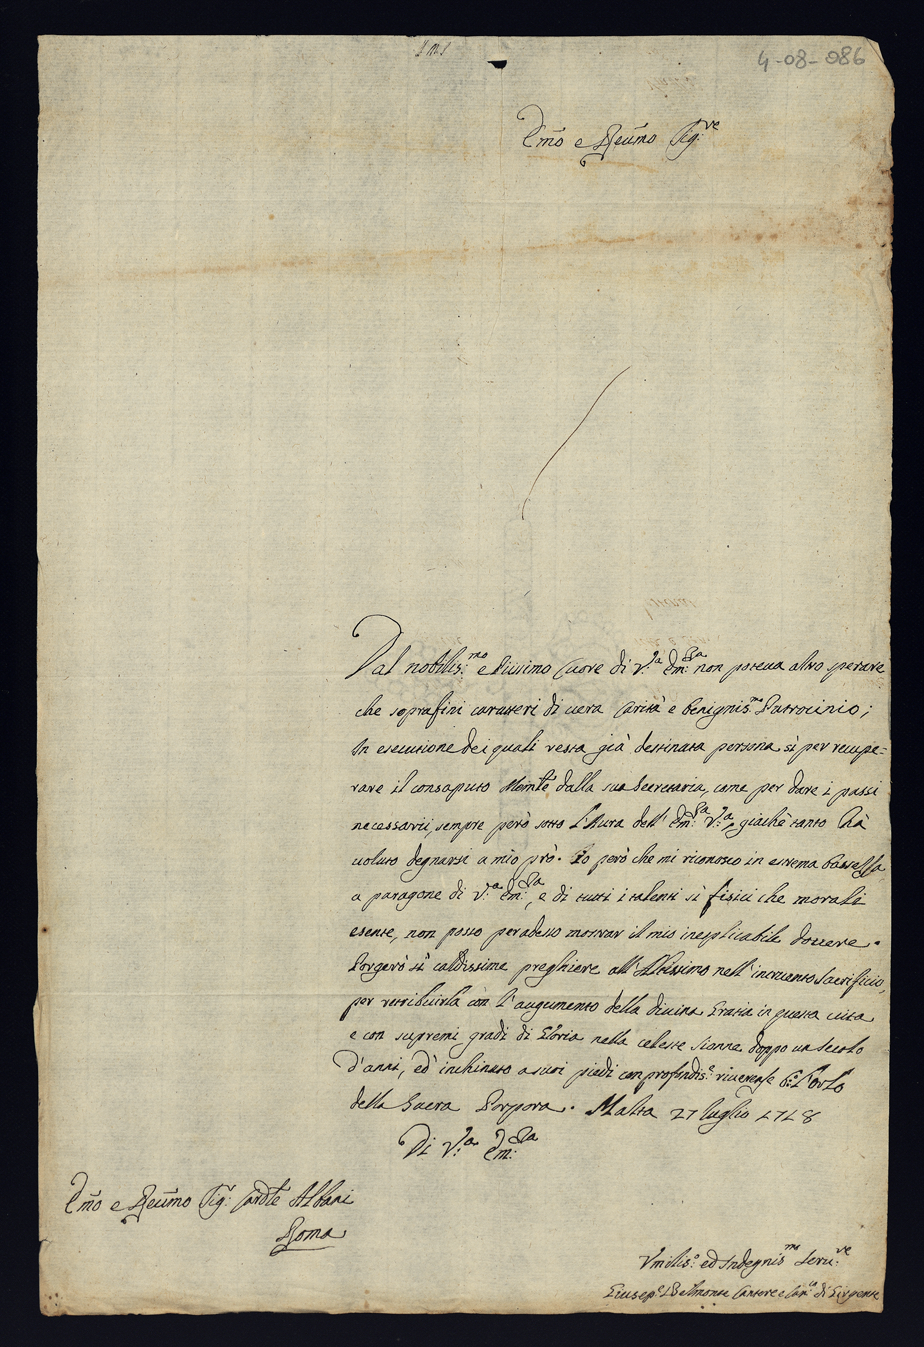 4-08-086
Em̃o e Reũmo Sig:re
Dal nobilis:mo e Piissimo Cuore di V:ra Em:za non poteua altro sperare
che soprafini caratteri di uera Carità e benignis:mo Patrocinio;
In esecutione dei quali resta già destinata persona sì per recupe=
rare il consaputo Memle dalla sua Secretaria, come per dare i passi
necessarii, sempre però sotto l'Aura dell' Em:za V:ra, giachè tanto hà
uoluto degnarsi a mio prò. Io però che mi riconosco in estrema bassezza
a paragone di V:ra Em:za, e di tutti i talenti sì fisici che morali
esente, non posso peradesso mostrar il mio inesplicabile douere.
Porgerò sì caldissime preghiere all' Altissimo nell' incruento Sacrificio,
per retribuirla còn l'augumento della diuina Gratia in questa uita
e con supremi gradi di Gloria nella celeste Sionne doppo un Secolo
d'anni, ed' inchinato a suoi piedi con profondis:e riuerenze l'orlo
della Sacra Porpora. Malta 27 luglio 1718
Di V:ra Em:za
Em̃o e Reũmo Sig: Cardle Albani
Roma
Vmilis:o ed Indegnis:mo Seru:re
Giusep:e Belmonte Cantore e Can:co di Girgente